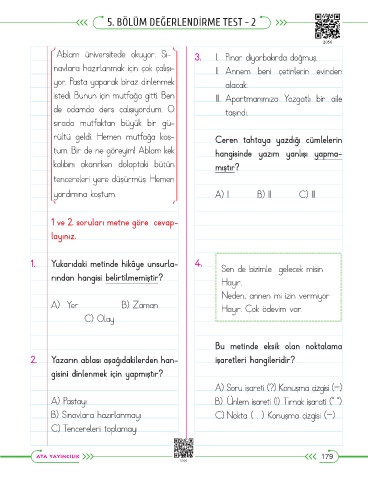 5. BÖLÜM DEĞERLENDİRME TEST - 2
Ablam üniversitede okuyor. Sı-
navlara hazırlanmak için çok çalışı-
yor. Pasta yaparak biraz dinlenmek
istedi. Bunun için mutfağa gitti. Ben
de odamda ders çalışıyordum. O
sırada mutfaktan büyük bir gü-
rültü geldi. Hemen mutfağa koş-
tum. Bir de ne göreyim! Ablam kek
kalıbını alıarırken dolaptaki bütün
tencereleri yere düşürmüş. Hemen
yardımına koştum.
1 ve 2. soruları metne göre cevap-
layınız.
1. Yukarıdaki metinde hikâye unsurla-
rından hangisi belirtilmemiştir?
A) Yer B) Zaman
C) Olay
2. Yazarın ablası aşağıdakilerden han-
gisini dinlenmek için yapmıştır?
A) Pastayı
B) Sınavlara hazırlanmayı
C) Tencereleri toplamayı
3. I. Pınar diyarbakırda doğmuş.
II. Annem beni çetinlerin evinden
alacak.
III. Apartmanımıza Yozgatlı bir aile
taşındı.
Ceren tahtaya yazdığı cümlelerin
hangisinde yazım yanlışı yapma-
mıştır?
A) I B) II C) III
4. Sen de bizimle gelecek misin
Hayır.
Neden, annen mi izin vermiyor
Hayır. Çok ödevim var.
Bu metinde eksik olan noktalama
işaretleri hangileridir?
A) Soru işareti (?) Konuşma çizgisi (—)
B) Ünlem işareti (!) Tırnak işareti (" ")
C) Nokta (...) Konuşma çizgisi (—)
ATA YAYINCILIK
179